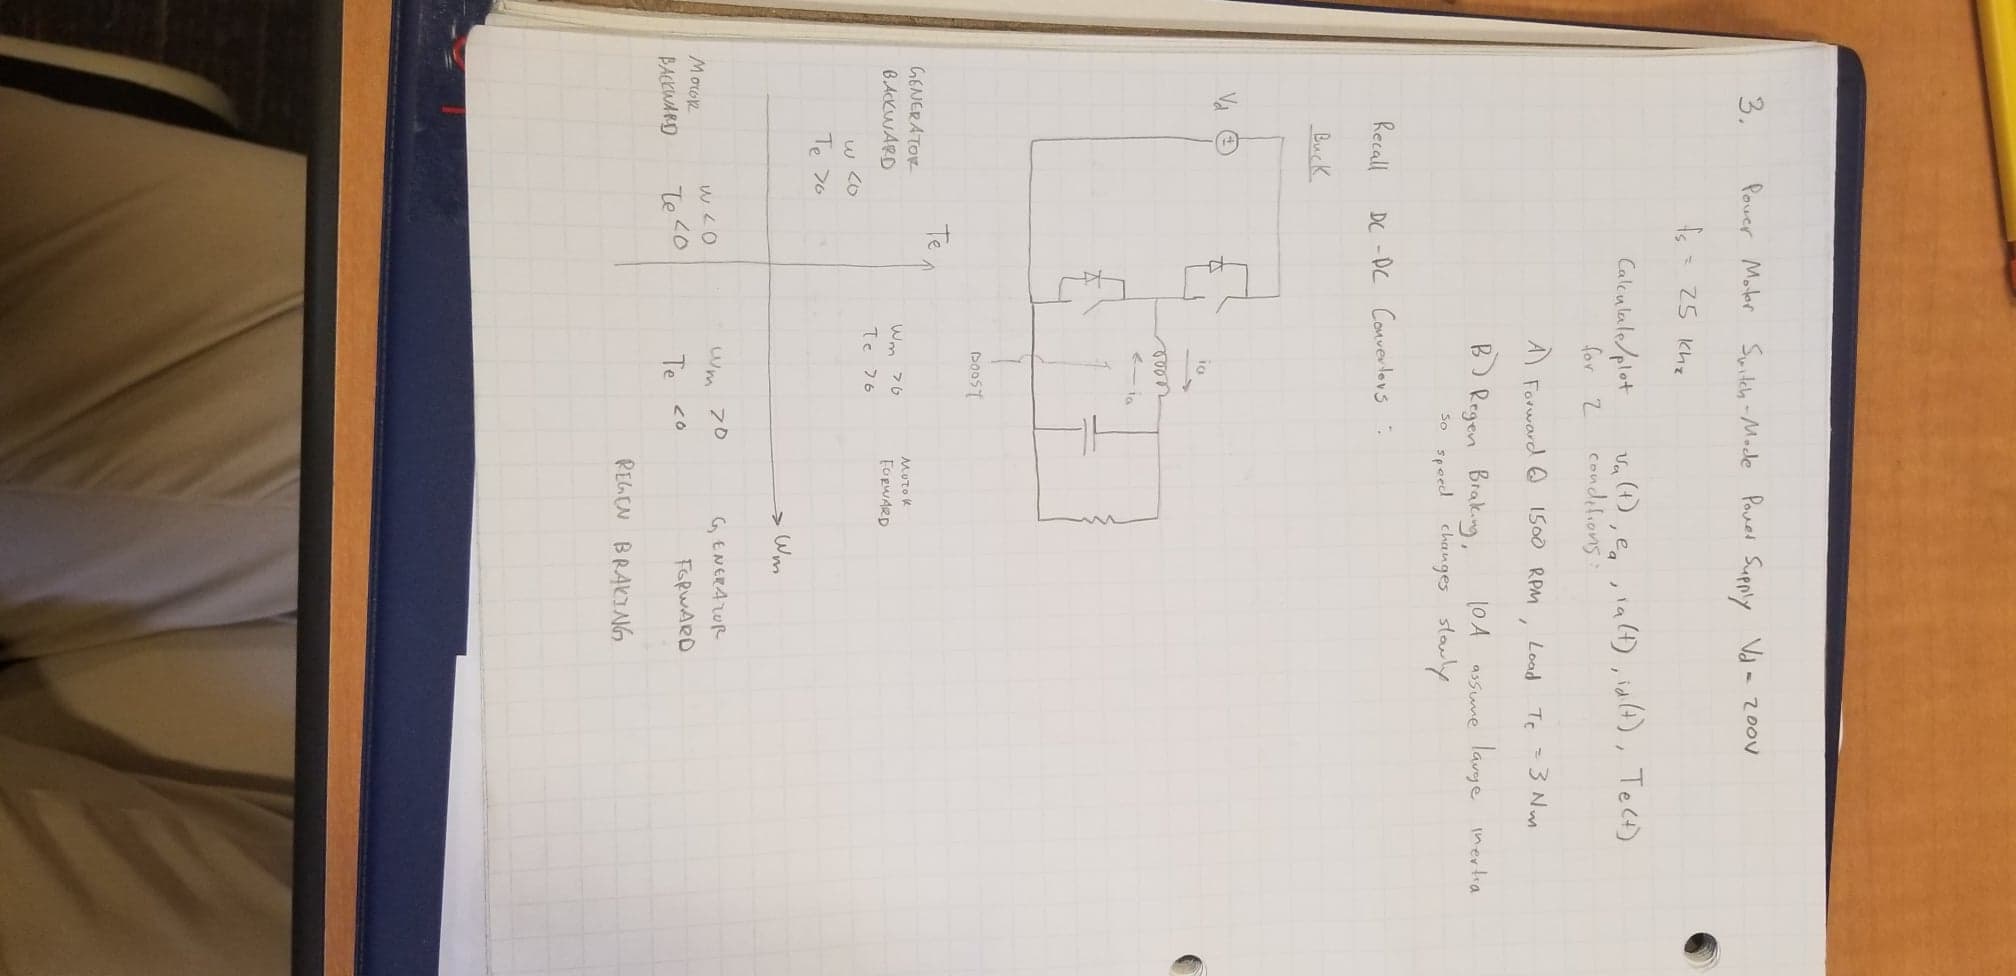 3. Power Motor Switch-Mode Power Supply Vd = 200V
fs = 25 Khz
Calculate/plot va(t), ea, ia(t), id(t), Te(t)
for 2 conditions:
A) Forward @ 1500 RPM, Load Te = 3 Nm
B) Regen Braking, 10A assume large inertia
so speed changes slowly
Recall DC-DC Convertors :
Buck
Vd
ia
ia
BOOST
Te
GENERATOR
BACKWARD
w <0
Te >0
Wm >0
Te >0
MOTOR
FORWARD
Wm
MOTOR
BACKWARD
w <0
Te <0
Wm >0
Te <0
GENERATOR
FORWARD
REGEN BRAKING